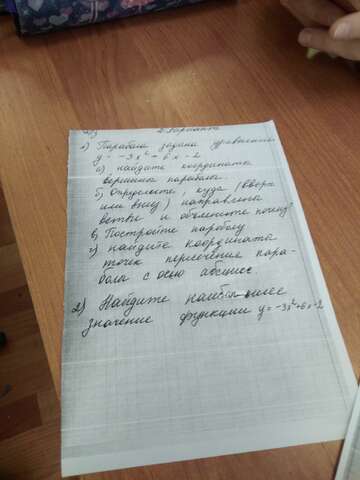 2 варианта
1) Парабола задана уравнением
y = -3x² + 6x - 2
а) найдите координата
вершины параболы.
б) Определите, куда (вверх
или вниз) направлены
ветви и объясните почему?
в) Постройте параболу
г) найдите координаты
точек пересечение пара-
болы с осью абсцисс.
2) Найдите наибольшее
значение функции y = -3x²+6x-2